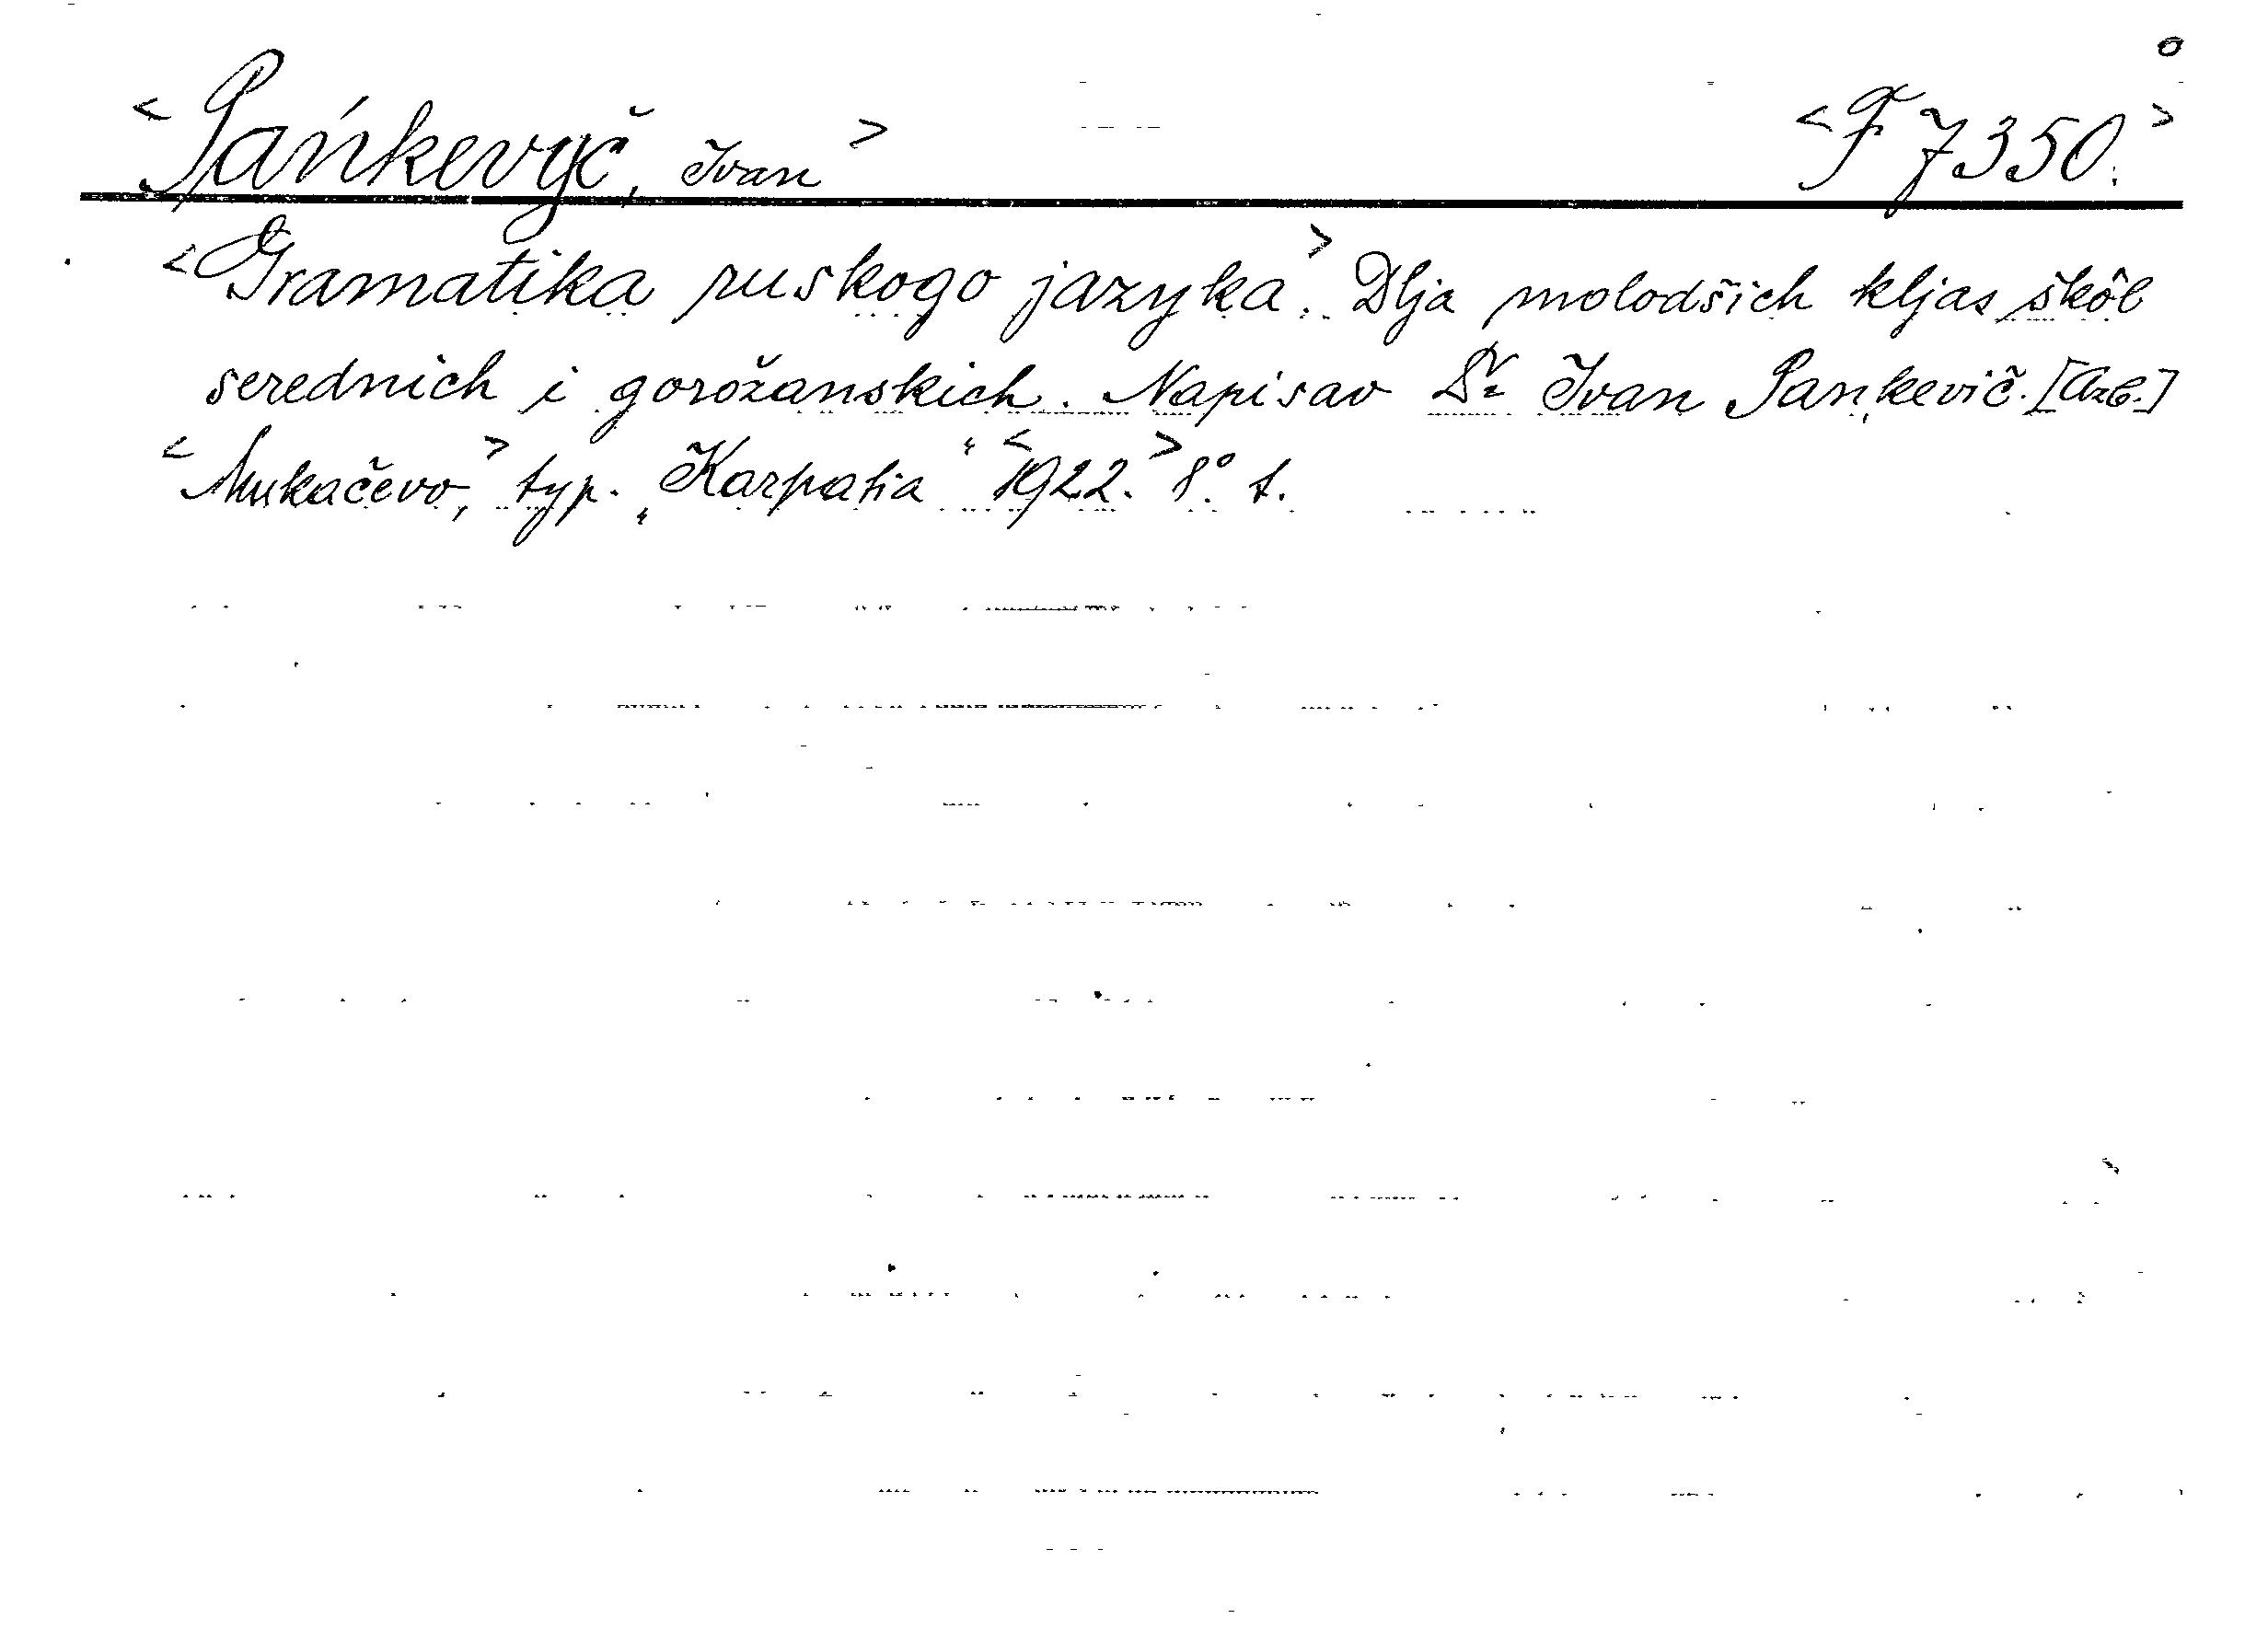 <Pańkevyč, Ivan> <F 7350.>
<Gramatika ruskogo jazyka.> Dlja molodšich kljas škôl
serednich i gorožanskich. Napisav Dr Ivan Pankevič. [Azb.]
<Mukačevo,> typ. „Karpatia“ <1922.> 8°. t.